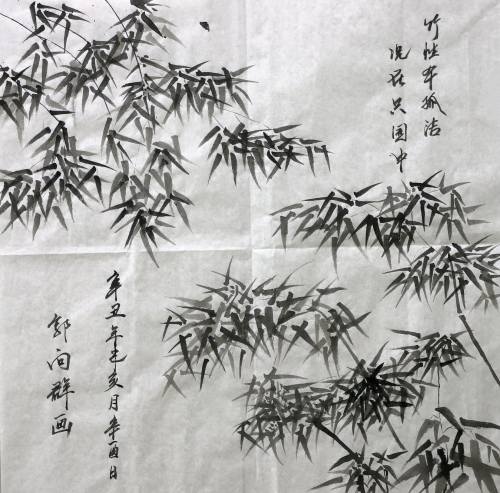 竹性本孤洁
况在只园中
辛丑年己亥月辛酉日
郭向群画